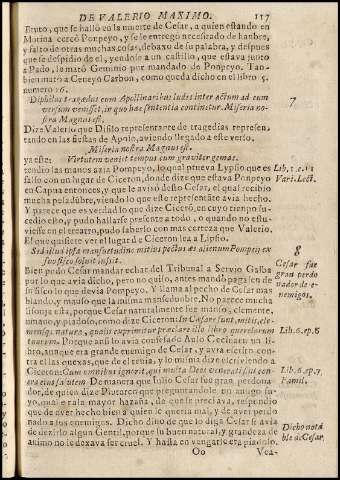 DE VALERIO MAXIMO. 117
Bruto, que se halló en la muerte de Cesar, a quien estando en
Motina cercó Pompeyo, y se le entregò necesitado de hanbre,
y falto de otras muchas cosas, debaxo de su palabra, y despues
que se despidio de èl, yendose a un castillo, que estava junto
a Pado, lo matò Geminio por mandado de Ponpeyo. Tan-
bien matò a Ceneyo Carbon, como queda dicho en el libro 5.
numero 16.
Diphilus tragœdus cum Apollinaribus ludos inter actum ad eum
versum venisset, in quo hæc sententia continetur. Miseria no-
stra Magnus est.
7
Dize Valerio que Difilo representante de tragedias represen-
tando en las fiestas de Apolo, aviendo llegado a este verso.
Miseria nostra Magnus est.
ya este: Virtutem venit tempus cum graviter gemas.
tendio las manos azia Pompeyo, lo qual prueva Lypsio que es
falso con un lugar de Ciceron, donde dize que estava Ponpeyo
en Capua entonces, y que le avisò desto Cesar, el qual recibio
mucha pesadumbre, viendo lo que este representante avia hecho.
Y parece que es verdad lo que dize Ciceró, en cuyo tienpo su-
cedio esto, y pudo hallarse presente a todo, o quando no estu-
viesse en el teatro, pudo saberlo con mas certeza que Valerio.
El que quisiere ver el lugar de Ciceron lea a Lipsio.
Lib. 1. c. 11
Vari. Lect.
Sed illud
8
Bien pudo Cesar mandar echar del Tribunal a Servio Galba
por lo que avia dicho, pero no quiso, antes mandò pagasen de
su fisco lo que devia Pompeyo. Y llama al pecho de Cesar mas
blando, y manso que la misma mansedunbre. No parece mucha
lisonja esta, porque Cesar naturalmente fue manso, clemente,
umano, y piadoso, como dize Ciceron:
Cesar fue
gran perdo
nador de e-
nemigos.
Lib. 6. ep. 6
toarum. Porque ansi lo avia confesado Aulo Cecina en un li-
bro, aunque era grande enemigo de Cesar, y avia escrito con-
tra el las quexas, que del tenia, y lo misma dize escriviendo a
Ciceron: Cum omnibus ignoverit, qui multa Deos venerati sint con-
tra eius salutem De manera que Iulio Cesar fue gran perdona-
dor, de quien dize Plutarco que preguntandole un amigo su-
yo, qual era la mayor hazaña, de que se preciava, respondio
que de aver hecho bien a quien le queria mal, y de aver perdo
nado a sus enemigos. Dicho dino de que lo diga Cesar si avia
de dezirlo algun Gentil, porque su buen natural, y grandeza de
animo no le dexava ser cruel. Y hasta en vengarse era piadoso.
Lib. 6. ep. 7.
Famil.
Dicho nota
ble de Cesar.
Oo Vea-